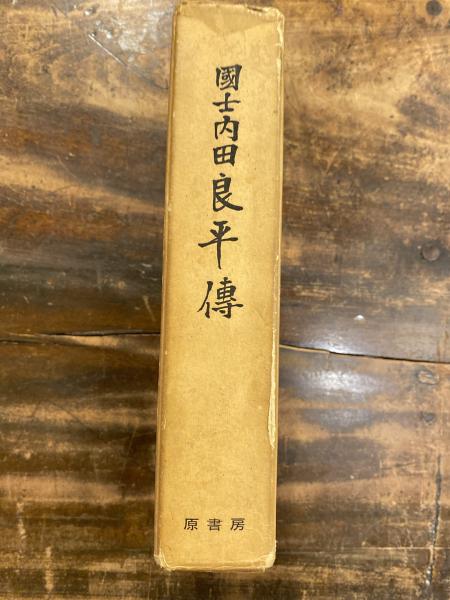 國士内田良平傳
原書房